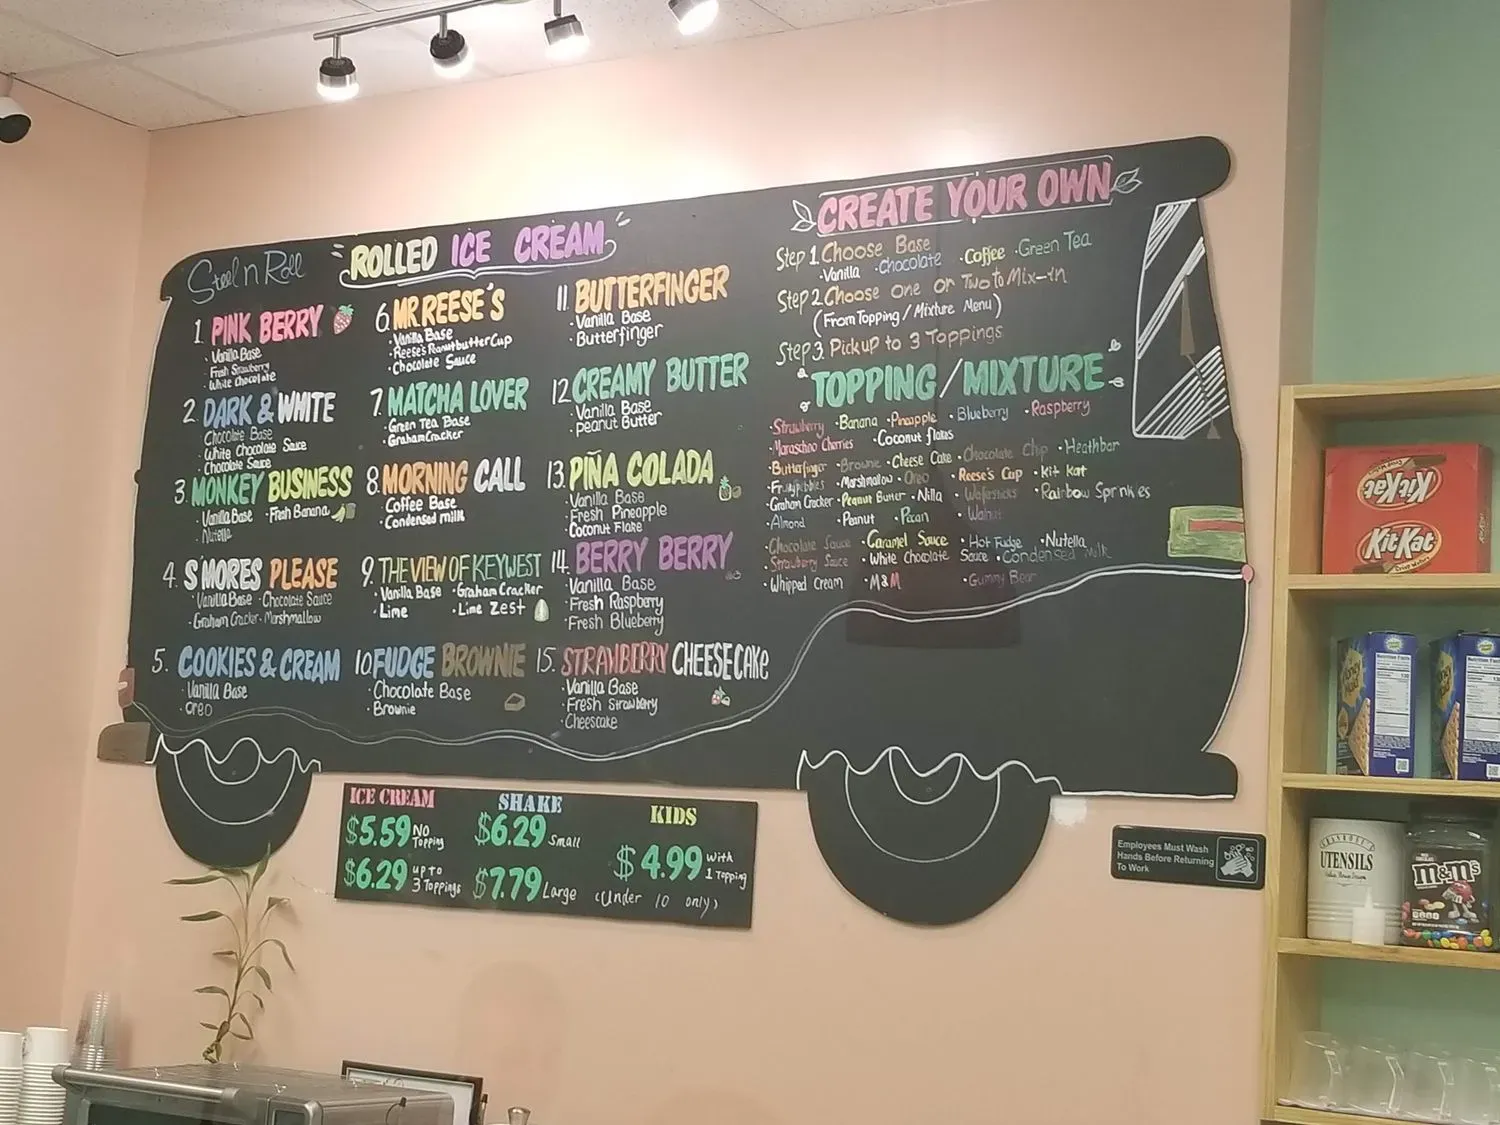 Steel n Roll
ROLLED ICE CREAM
1. PINK BERRY
· Vanilla Base
· Fresh Strawberry
· White Chocolate
2. DARK & WHITE
Chocolate Base
· White Chocolate Sauce
· Chocolate Sauce
3. MONKEY BUSINESS
· Vanilla Base · Fresh Banana
· Nutella
4. S'MORES PLEASE
· Vanilla Base · Chocolate Sauce
· Graham Cracker · Marshmallow
5. COOKIES & CREAM
· Vanilla Base
· oreo
6. MR REESE'S
· Vanilla Base
· Reese's Peanutbutter Cup
· Chocolate Sauce
7. MATCHA LOVER
· Green Tea Base
· Graham Cracker
8. MORNING CALL
· Coffee Base
· Condensed milk
9. THE VIEW OF KEYWEST
· Vanilla Base · Graham Cracker
· Lime · Lime Zest
10. FUDGE BROWNIE
· Chocolate Base
· Brownie
11. BUTTERFINGER
· Vanilla Base
· Butterfinger
12. CREAMY BUTTER
· Vanilla Base
· peanut Butter
13. PIÑA COLADA
· Vanilla Base
· Fresh Pineapple
· Coconut Flake
14. BERRY BERRY
· Vanilla Base
· Fresh Raspberry
· Fresh Blueberry
15. STRAWBERRY CHEESECAKE
· Vanilla Base
· Fresh Strawberry
· Cheescake
CREATE YOUR OWN
Step 1. Choose Base
· Vanilla · chocolate · Coffee · Green Tea
Step 2. Choose one or Two to Mix-in
(From Topping / Mixture Menu)
Step 3. Pick up to 3 Toppings
TOPPING/MIXTURE
· Strawberry · Banana · Pineapple · Blueberry · Raspberry
· Maraschino Cherries · Coconut flakes
· Butterfinger · Brownie · Cheese Cake · Chocolate Chip · Heathbar
· Fruitypebbles · Marshmallow · Oreo · Reese's Cup · Kit Kat
· Graham Cracker · Peanut Butter · Nilla · Wafersticks · Rainbow Sprinkles
· Almond · Peanut · Pecan · Walnut
· Chocolate Sauce · Caramel Sauce · Hot Fudge · Nutella
· Strawberry Sauce · White Chocolate Sauce · Condensed Milk
· Whipped Cream · M&M · Gummy Bear
ICE CREAM
$5.59 No Topping
$6.29 up to 3 Toppings
SHAKE
$6.29 Small
$7.79 Large
KIDS
$4.99 with 1 Topping
(Under 10 only)
Employees Must Wash
Hands Before Returning
To Work
KitKat
KitKat
UTENSILS
m&m's